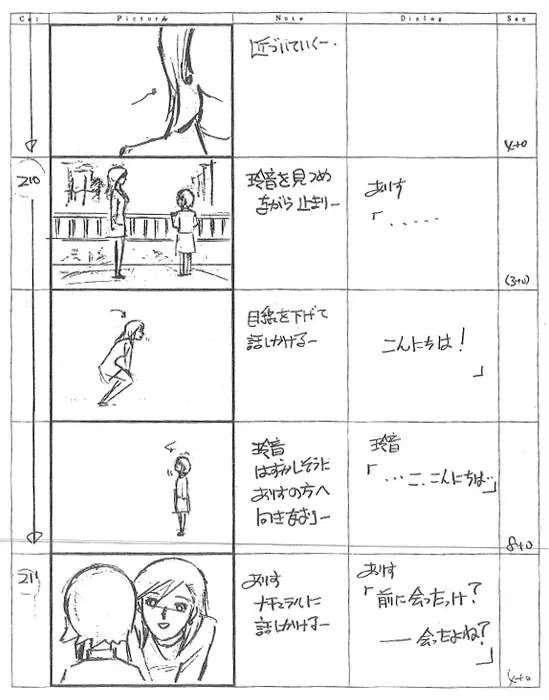 Cut Picture Note Dialog Sec
近づいていくー.
4+0
210
玲音を見つめ
ながら止まりー
ありす
「 . . . . .
(3+0)
目線を下げて
話しかけるー
こんにちは!
」
玲音
はずかしそうに
ありすの方へ
向きなおりー
玲音
「…こ、こんにちは…」
8+0
211
ありす
ナチュラルに
話しかけるー
ありす
「前に会ったっけ?
── 会ったよね?
」
4+0